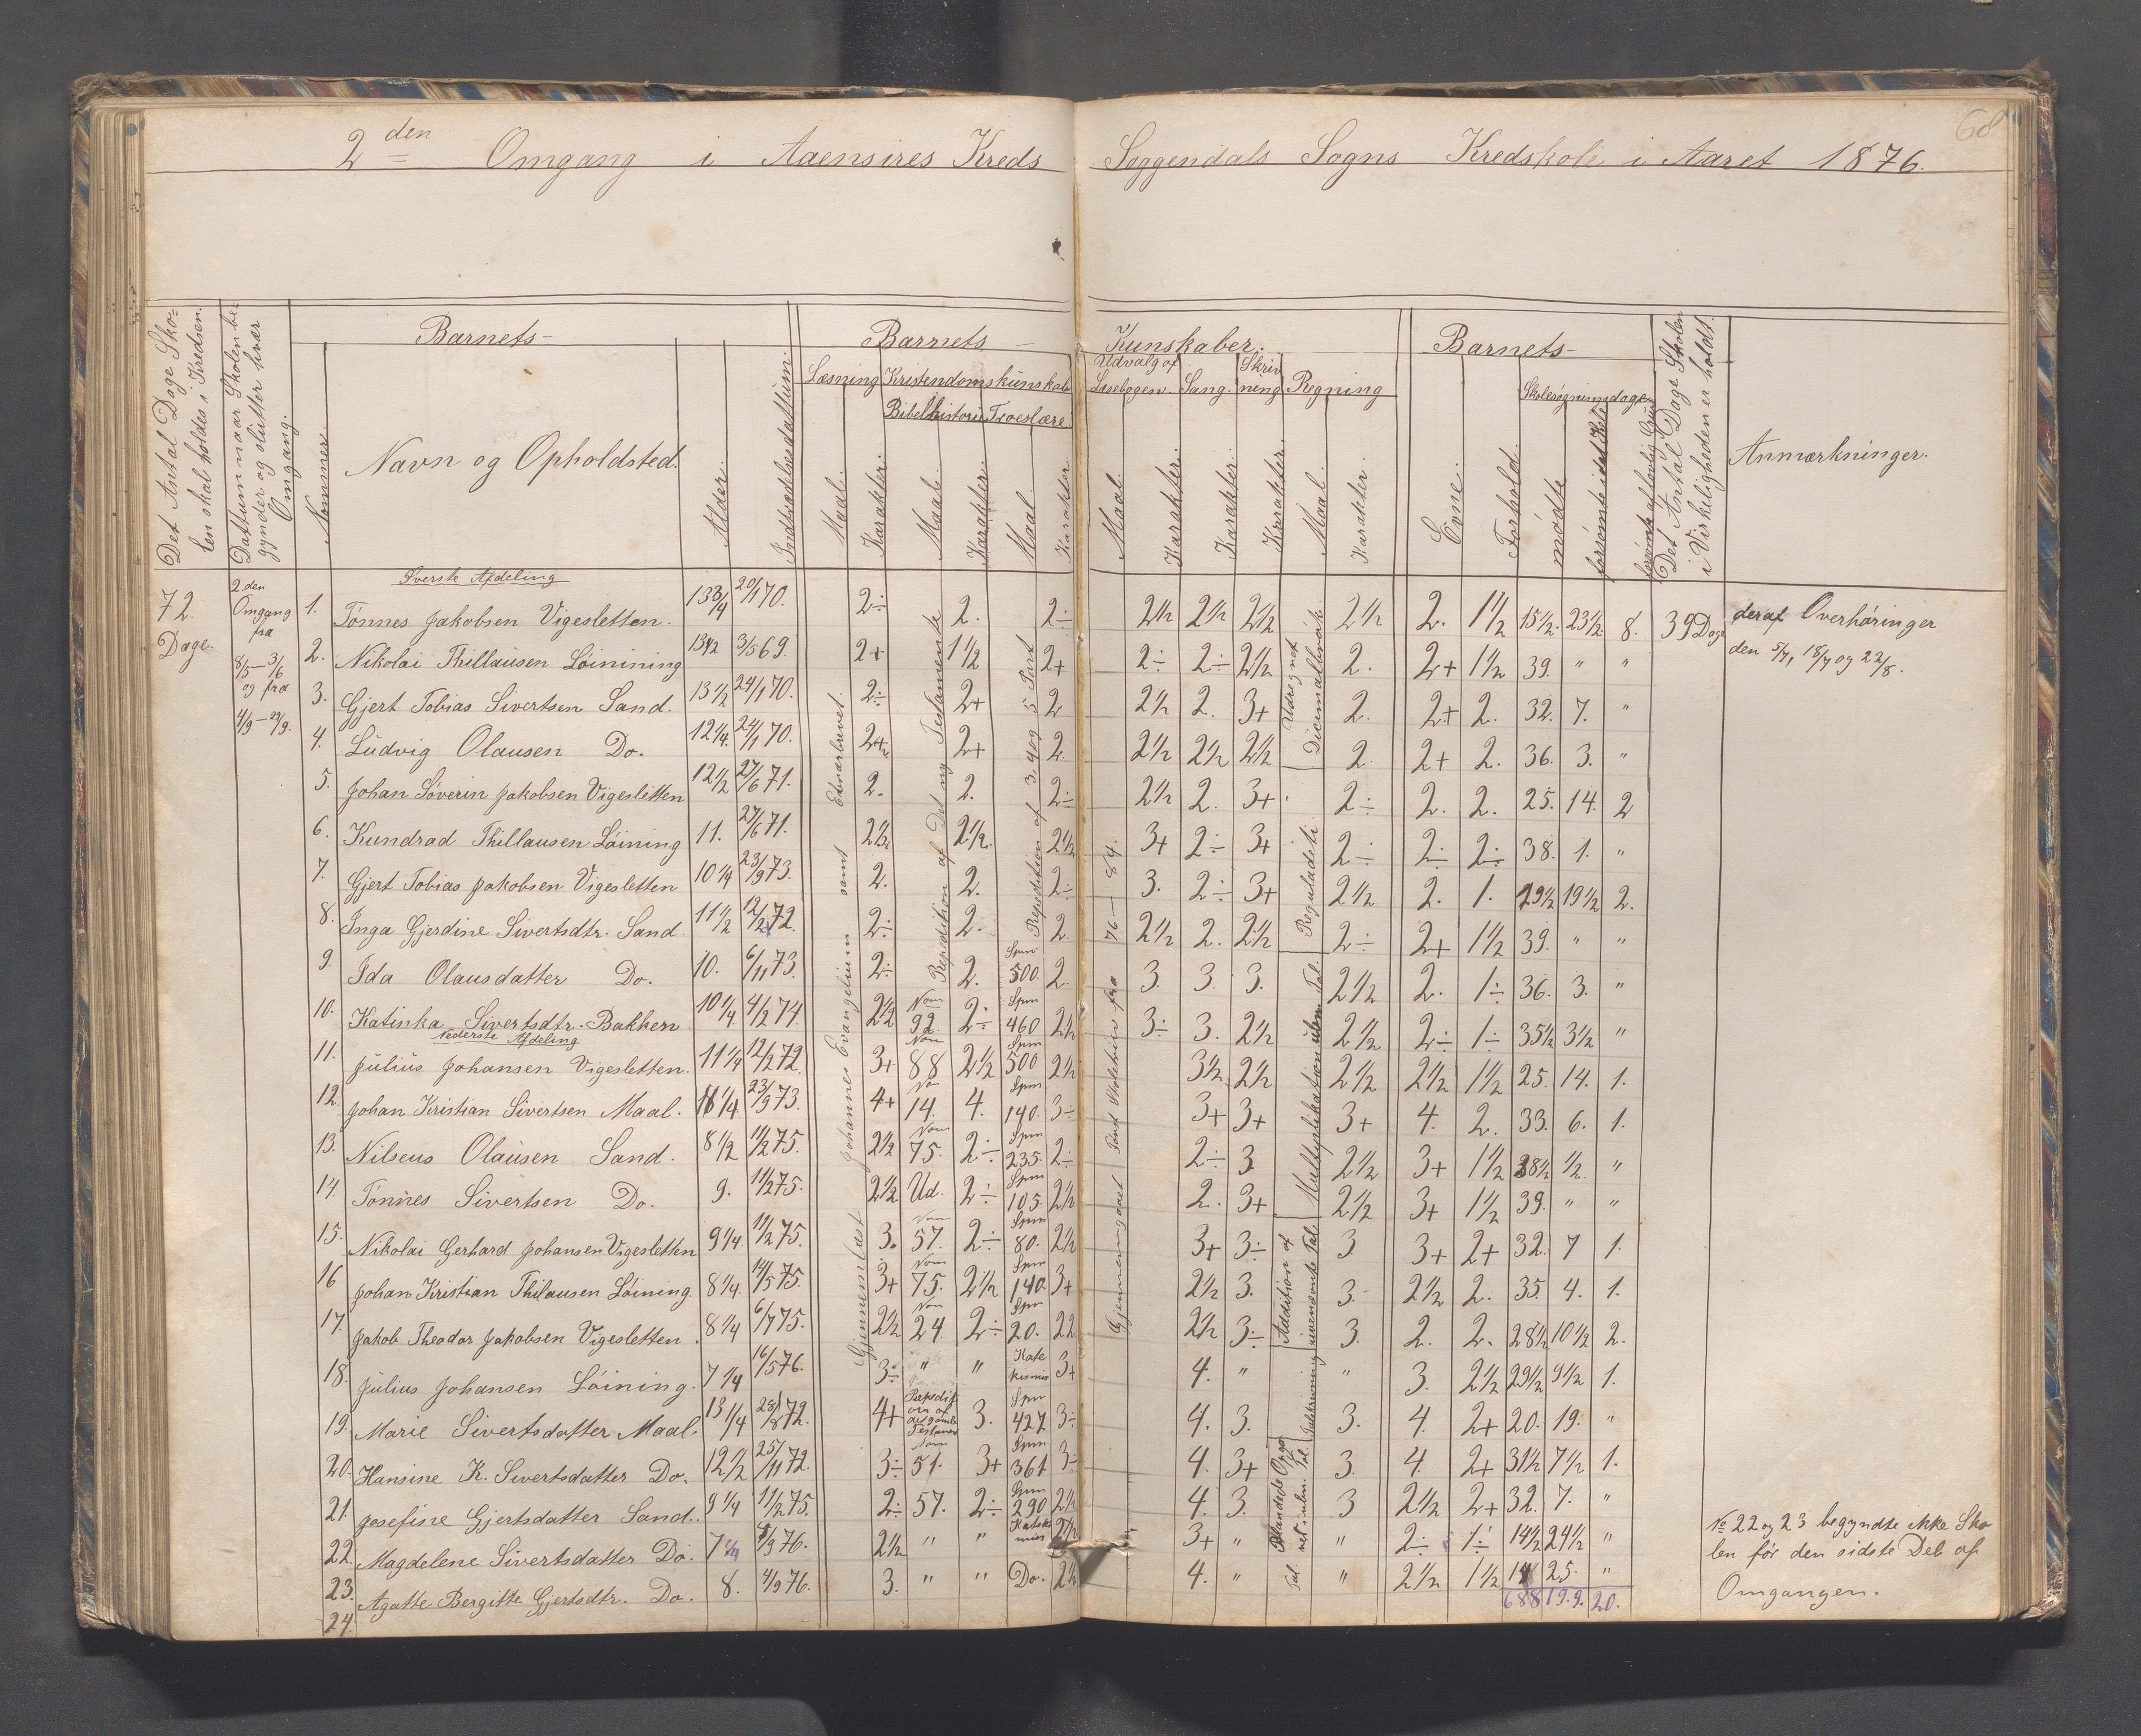 68
2den Omgang i Aaensires Kreds Soggendals Sogns Kredskole i Aaret 1876.
Det Antal Dage Sko=
len skal holdes i Kredsen.
Dattum naar Skolen be-
gynder og slutter hver
Omgang.
Nommer.
Barnets-
Navn og Opholdsted.
Alder.
Indtrædelsesdattum.
Barnets — Kunskaber.
Læsning
Maal.
Karakter.
Kristendomskunskab
Bibelhistorie
Maal.
Karakter.
Troeslære.
Maal
Karakter
Udvalg af
Læsebogen.
Maal.
Karakter.
Sang.
Karakter.
Skriv
ning
Karakter.
Regning
Maal.
Karakter.
Barnets-
Evne.
Forhold.
Skolesøgningsdage
mødte
forsømte i det Hele
forsømte af lovlig Grund
Det Antal Dage Skolen
i Virkeligheden er holdt.
Anmærkninger.
72.
Dage.
2.den
Omgang
fra
8/5 — 3/6
og fra
4/9 — 23/9.
Øverste Afdeling
1. Tønnes Jakobsen Vigesletten. 13 3/4 20/1 70. 2÷ 2. 2÷ 2½ 2½ 2½ 2½ 2. 1½ 15½. 23½ 8. 39 Dage
deraf Overhøringer
den 5/7, 18/7 og 22/8.
2. Nikolai Thillausen Løinining 13½ 3/5 69. 2+ 1½ 2+ 2÷ 2÷ 2½ 2. 2+ 1½ 39. " "
3. Gjert Tobias Sivertsen Sand. 13½ 24/1 70. 2÷ 2+ 2 2½ 2. 3+ 2. 2+ 2. 32. 7. "
4. Ludvig Olausen Do. 12¼. 24/1 70. 2+ 2. 2½ 2½ 2½ 2. 2+ 2. 36. 3. "
5. Johan Søverin Jakobsen Vigesletten 12½ 27/6 71. 2. 2. 2÷ 2½ 2. 3+ 2÷ 2. 2. 25. 14. 2
6. Kundrad Thillausen Løining 11. 27/6 71. 2½ 2½. 2½ 3+ 2÷ 3+ 2÷ 2÷ 2÷ 38. 1. "
7. Gjert Tobias Jakobsen Vigesletten 10¼ 23/9 73. 2. 2. 2÷ 3. 2÷ 3+ 2½ 2. 1. 19½ 19½ 2.
8. Inga Gjerdine Sivertsdtr. Sand 11½ 12/2 72. 2÷ 2. 2. 2½ 2. 2½ 2÷ 2+ 1½ 39. " "
9. Ida Olausdatter Do. 10. 6/11 73. 2÷ 2. Spm 500. 2. 3. 3. 3. 2½ 2. 1÷ 36. 3. "
10. Katinka Sivertsdtr. Bakken 10¼. 4/2 74. 2½ Nom 92. 2÷ Spm 460 2½ 3÷ 3. 2½ 2½ 2÷ 1÷ 35½ 3½ "
Nederste Afdeling
11. Julius Johansen Vigesletten. 11¼ 12/2 72. 3+ Nom 88 2½ Spm 500 2½ 3½ 2½ 2½ 2½ 1½ 25. 14. 1.
12. Johan Kristian Sivertsen Maal. 23/9 73. 4+ No 14. 4. Spm 140. 3÷ 3+ 3+ 3+ 4. 2. 33. 6. 1.
13. Nilseus Olausen Sand. 8½ 11/2 75. 2½ Nom 75. 2÷ Spm 235. 2÷ 2÷ 3. 2½ 3+ 1½ 38½ ½. "
14. Tønnes Sivertsen Do. 9. 11/2 75. 2½ Ud. 2÷ Spm 105. 2½ 2. 3+ 2½ 3+ 1½ 39. " "
15. Nikolai Gerhard Johansen Vigesletten 9¼. 11/2 75. 3. Nom 57. 2÷ Spm 80. 2½ 3+ 3÷ 3 3+ 2+ 32. 7 1.
16 Johan Kristian Thilausen Løining. 8¼. 14/5 75. 3+ Nom 75. 2½ Spm 140. 3+ 2½ 3. 3. 2½ 2. 35. 4. 1.
17. Jakob Theodor Jakobsen Vigesletten. 8¼ 6/7 75. 2½ Nom 24. 2÷ Spm 20. 2½ 3÷ 3. 2. 2. 28½ 10½ 2.
18. Julius Johansen Løining. 7¼ 16/5 76. 3÷ " " Kate kismus 3+ 4. " " 3. 2½ 29½ 9½ 1.
19. Marie Sivertsdatter Maal. 13¼ 23/8 72. 4+ 3. Spm 427. 3÷ 4. 3. 3. 4. 2+ 20. 19. "
20. Hansine K. Sivertsdatter Do. 12½ 25/11 72. 3÷ Nom 51. 3+ Spm 361. 3÷ 4. 3+ 3. 4. 2+ 31½ 7½ 1.
21. Josefine Gjertsdatter Sand. 9¼ 11/2 75. 2÷ 57. 2÷ Spm 290 2½ 4. 3. 3 2½ 2+ 32. 7. "
22. Magdelene Sivertsdatter Do. 7 76. 2½ " " 2½ 3+ " " 2÷ 1÷ 14½ 24½ "
23. Agatte Bergitte Gjertsdtr. Do. 8. 4/9 76. 3. " " Do. 2½ 4. " " 2½ 1½ 14 25. "
24.
688 19.9. 20.
Gjennemlæst Johannes Evangelium samt
Repedition af Det ny Testamente
Repedition af 3. 4 og 5 Part
Gjennemgaaet fra 76 — 84.
Udregnet
Dicimalbrøk.
Reguladetri.
Multiplikation i ulbn. Tal.
Addition af
uvenævnte Tal.
Blandede Opga
№ 22 og 23 begyndte ikke Sko
len før den sidste Del af
Omgangen.